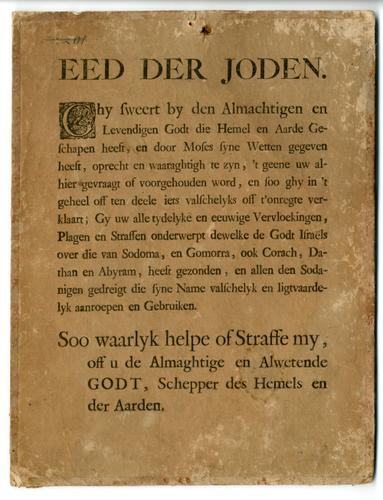 EED DER JODEN.
Ghy sweert by den Almachtigen en
Levendigen Godt die Hemel en Aarde Ge-
schapen heeft, en door Moses syne Wetten gegeven
heeft, oprecht en waaraghtigh te zyn, 't geene uw al-
hier gevraagt of voorgehouden word, en soo ghy in 't
geheel off ten deele iets valschelyks off t'onregte ver-
klaart; Gy uw alle tydelyke en eeuwige Vervloekingen,
Plagen en Straffen onderwerpt dewelke de Godt Israëls
over die van Sodoma, en Gomorra, ook Corach, Da-
than en Abyram, heeft gezonden, en allen den Soda-
nigen gedreigt die syne Name valschelyk en ligtvaarde-
lyk aanroepen en Gebruiken.
Soo waarlyk helpe of Straffe my,
off u de Almaghtige en Alwetende
GODT, Schepper des Hemels en
der Aarden.